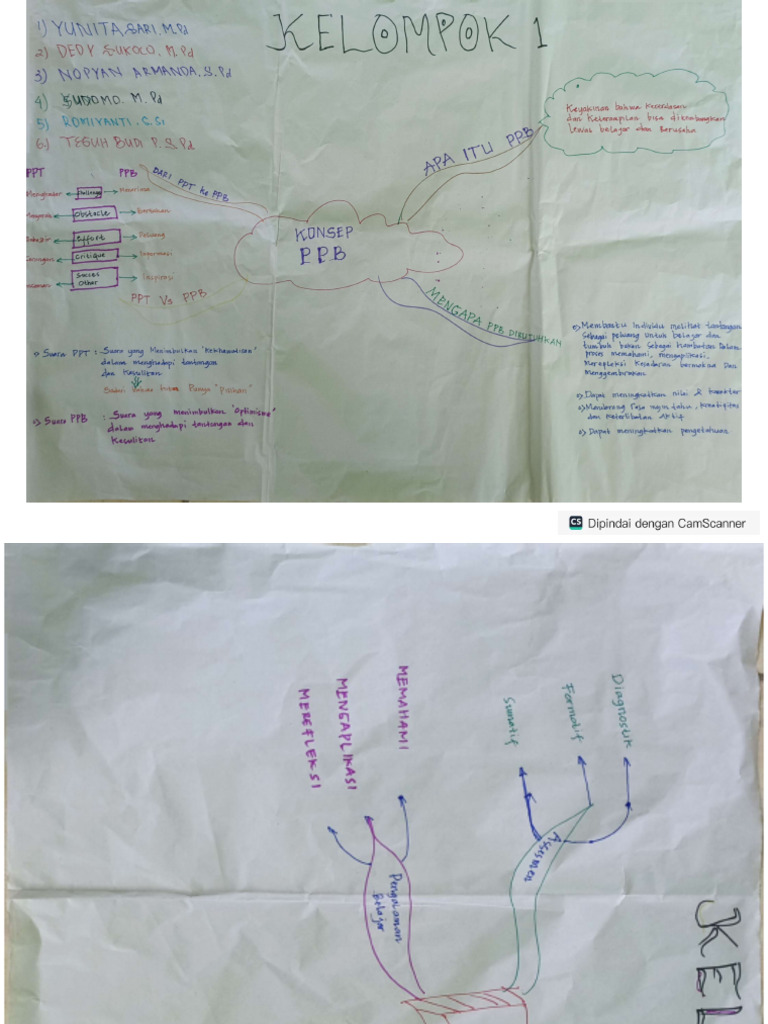 KELOMPOK 1
1) YUNITA SARI. M.Pd
2) DEDY SUKOCO. M.Pd
3) NOPYAN ARMANDA. S.Pd
4) SUDOMO. M.Pd
5) ROMIYANTI. S.Si
6) TEGUH BUDI P. S.Pd
PPT PPB
DARI PPT ke PPB
Challenge
Obstacle
Effort Peluang
Critique Informasi
Succes Other Inspirasi
PPT Vs PPB
KONSEP
PPB
APA ITU PPB
Keyakinan bahwa kecerdasan
dan Keterampilan bisa dikembangkan
lewat belajar dan Berusaha
MENGAPA PPB DIBUTUHKAN
Membantu Individu melihat tantangan
sebagai peluang untuk belajar dan
tumbuh bukan sebagai hambatan Dalam
proses memahami, mengaplikasi,
Merefleksi Kesadaran bermakna Dan
Menggembirakan
Dapat meningkatkan nilai & karakter
Mendorong rasa ingin tahu, kreatifitas
dan Keterlibatan Aktif
Dapat meningkatkan pengetahuan
Suara PPT : Suara yang Menimbulkan "
dalam menghadapi tantangan
dan Kesulitan
"Pilihan"
Suara PPB : Suara yang menimbulkan "Optimisme"
dalam menghadapi tantangan dan
Kesulitan
CS Dipindai dengan CamScanner
Diagnostik
Formatif
Sumatif
Asesmen
MEMAHAMI
MENGAPLIKASI
MEREFLEKSI
Pengalaman
Belajar
KEL